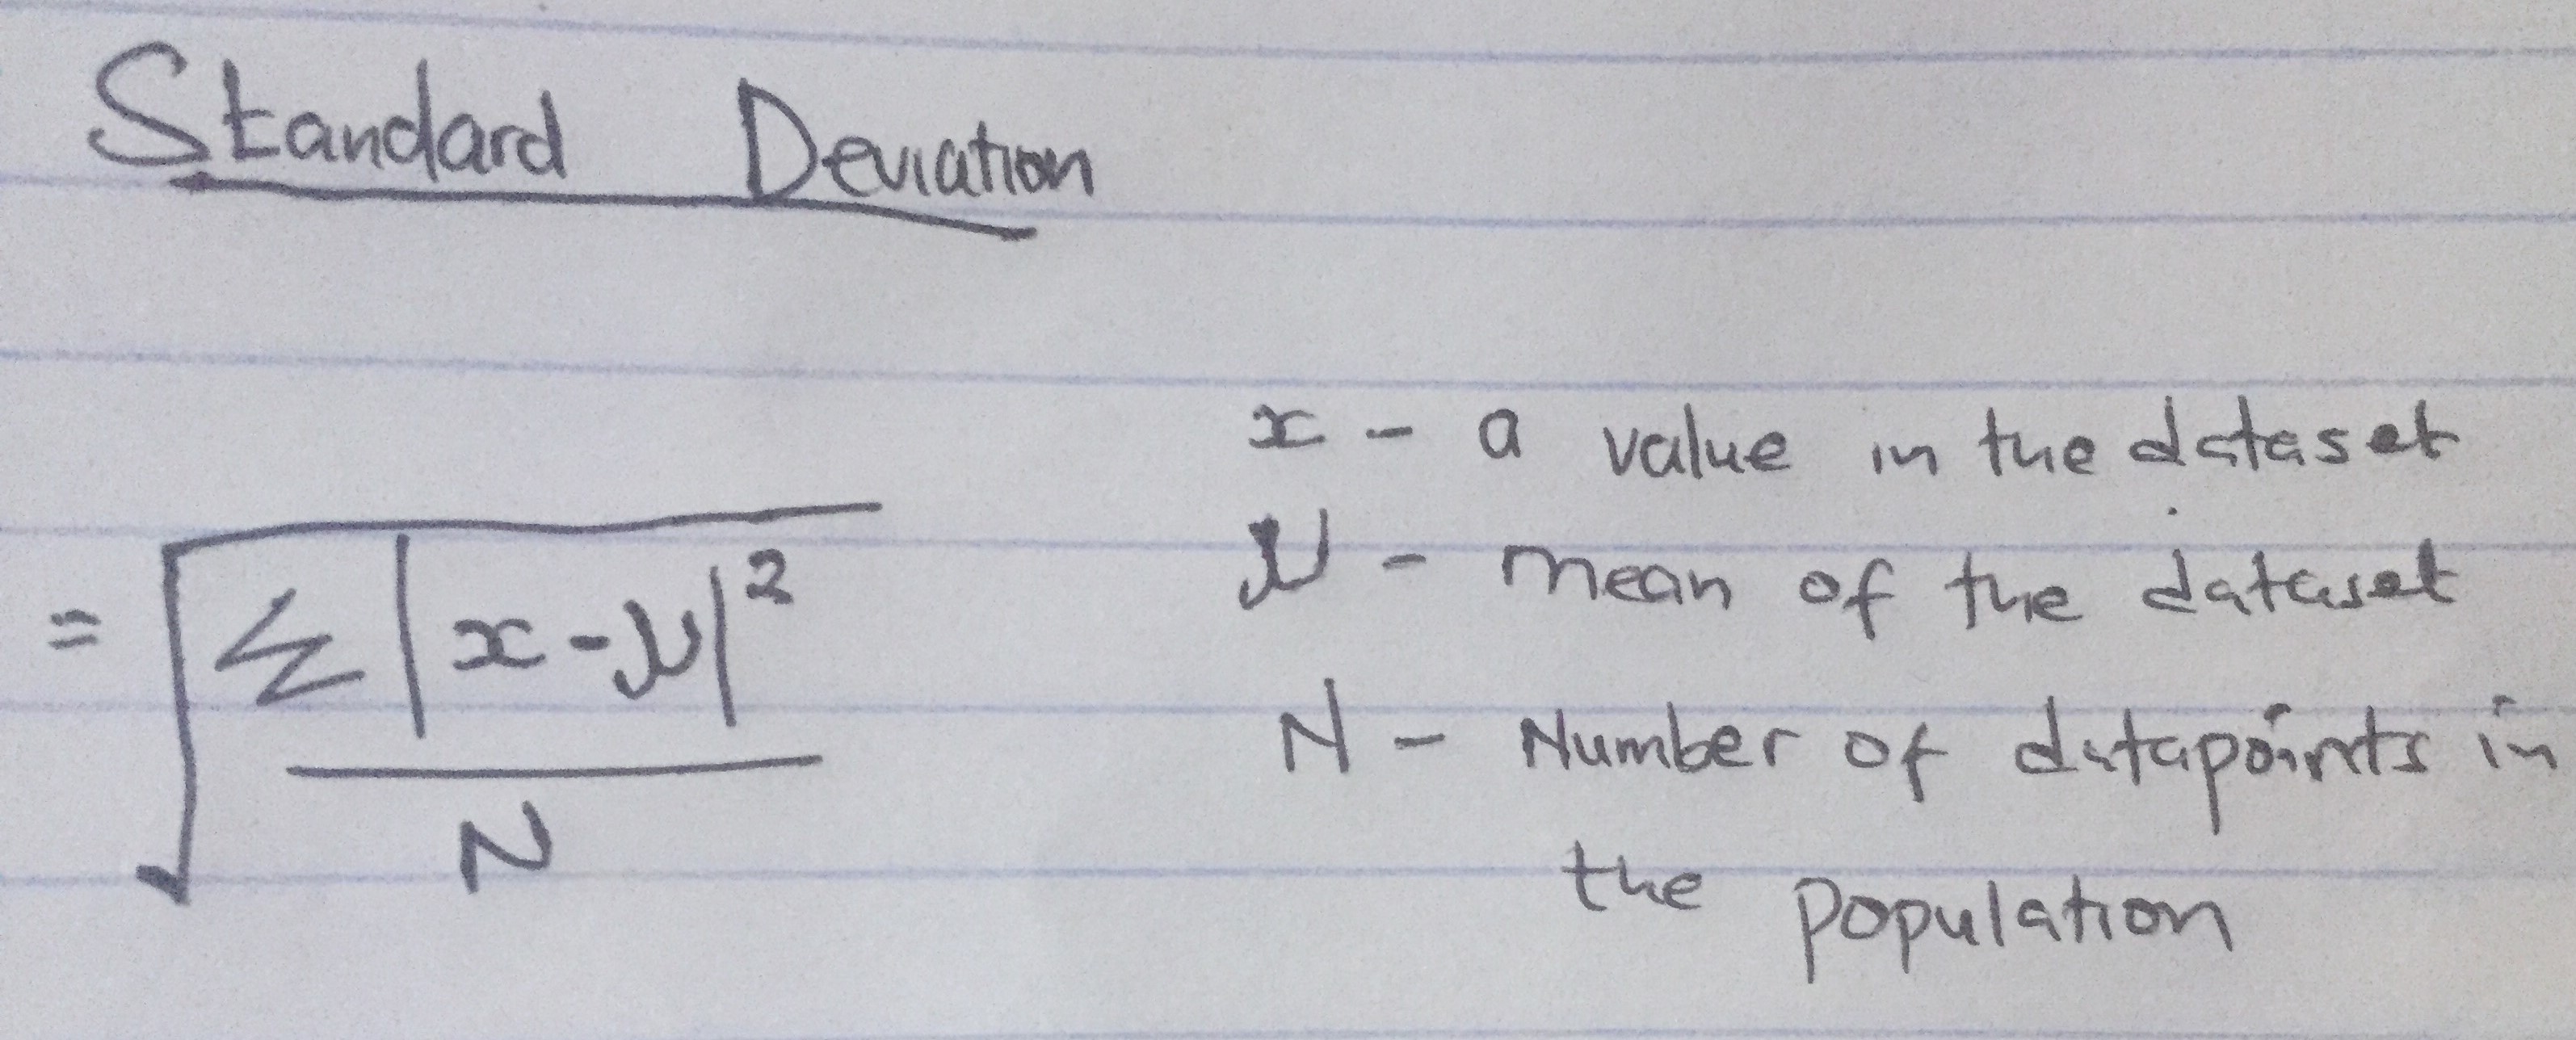 Standard Deviation
= √(Σ|x-μ|² / N)
x - a value in the dataset
μ - mean of the dataset
N - Number of datapoints in
the population